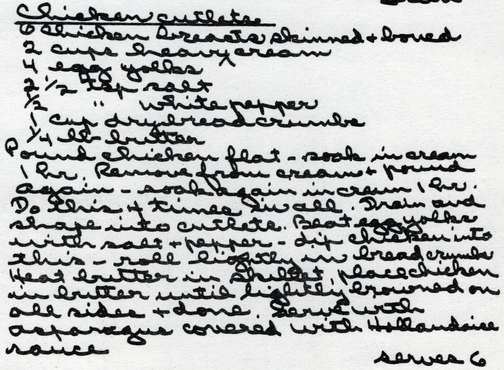 Chicken cutlets
6 chicken breasts skinned + boned
2 cups heavy cream
4 egg yolks
2 1/2 tsp salt
1/2 " white pepper
1 cup dry bread crumbs
1/4 lb butter
Pound chicken flat - soak in cream
1 hr. Remove from cream + pound
again - soak again in cream 1 hr.
Do this 4 times in all. Drain and
shape into cutlets. Beat egg yolks
with salt + pepper - dip chicken into
this - roll lightly in bread crumbs
Heat butter in skillet place chicken
in butter until lightly browned on
all sides + done. Serve with
asparagus covered with Hollandaise
sauce
serves 6